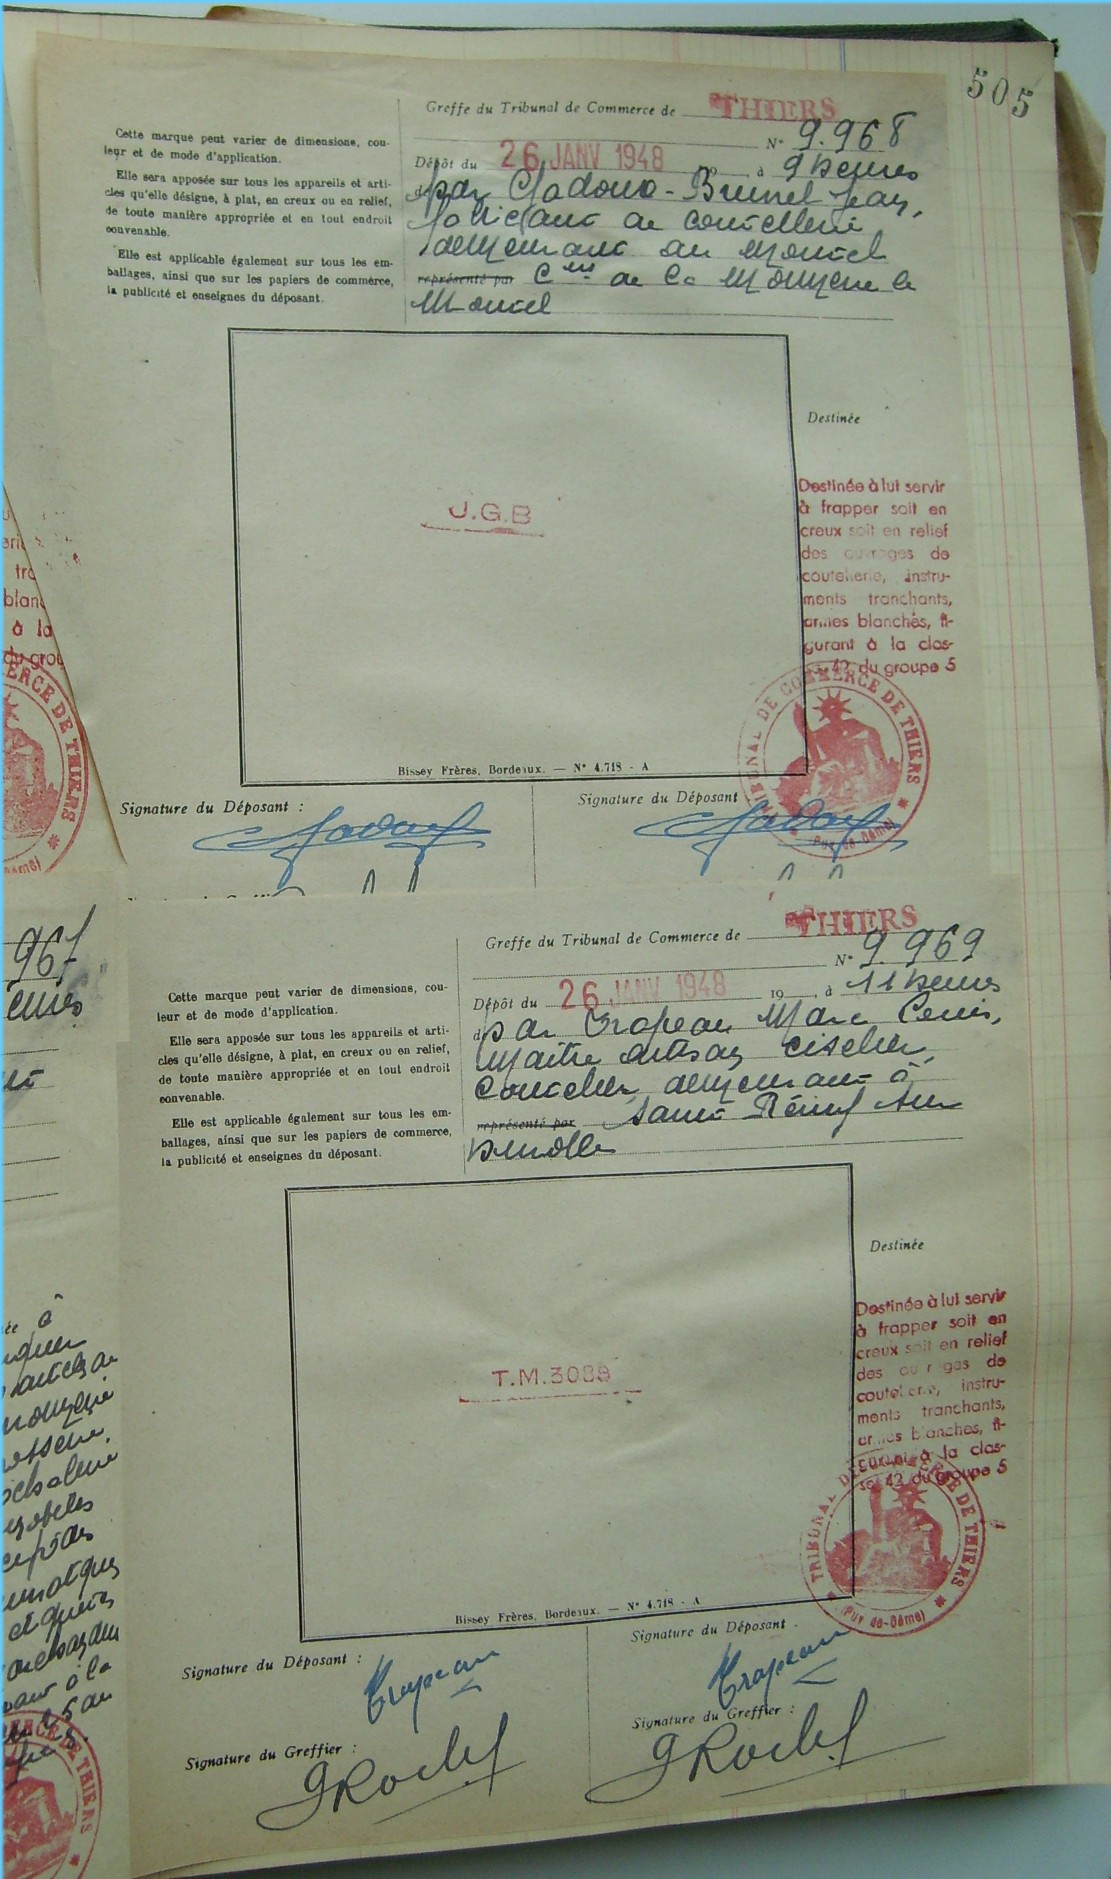 505
Greffe du Tribunal de Commerce de THIERS
N° 9.968
Dépôt du 26 JANV 1948 à 9 heures
Cette marque peut varier de dimensions, cou-
leur et de mode d'application.
Elle sera apposée sur tous les appareils et arti-
cles qu'elle désigne, à plat, en creux ou en relief,
de toute manière appropriée et en tout endroit
convenable.
Elle est applicable également sur tous les em-
ballages, ainsi que sur les papiers de commerce,
la publicité et enseignes du déposant.
par Brunel Jean,
fabricant de coutellerie
demeurant au Montel
représenté par Cne de La Monnerie le
Montel
J.G.B
Destinée
Destinée à lui servir
à frapper soit en
creux soit en relief
des ouvrages de
coutellerie, instru-
ments tranchants,
armes blanches, fi-
gurant à la clas-
se 42 du groupe 5
TRIBUNAL DE COMMERCE DE THIERS
(Puy-de-Dôme)
Bissey Frères, Bordeaux. — N° 4.718 - A
Signature du Déposant :
Signature du Déposant
Greffe du Tribunal de Commerce de THIERS
N° 9.969
Dépôt du 26 JANV 1948 19 à 11 heures
Cette marque peut varier de dimensions, cou-
leur et de mode d'application.
Elle sera apposée sur tous les appareils et arti-
cles qu'elle désigne, à plat, en creux ou en relief,
de toute manière appropriée et en tout endroit
convenable.
Elle est applicable également sur tous les em-
ballages, ainsi que sur les papiers de commerce,
la publicité et enseignes du déposant.
par Marc
Maître artisan ciselier,
Coutelier, demeurant à
représenté par Saint Rémy sur
Durolle
T.M.3089
Destinée
Destinée à lui servir
à frapper soit en
creux soit en relief
des ouvrages de
coutellerie, instru-
ments tranchants,
armes blanches, fi-
gurant à la clas-
se 42 du groupe 5
TRIBUNAL DE COMMERCE DE THIERS
(Puy-de-Dôme)
Bissey Frères, Bordeaux. — N° 4.718 - A
Signature du Déposant :
Signature du Déposant
Signature du Greffier :
Signature du Greffier :